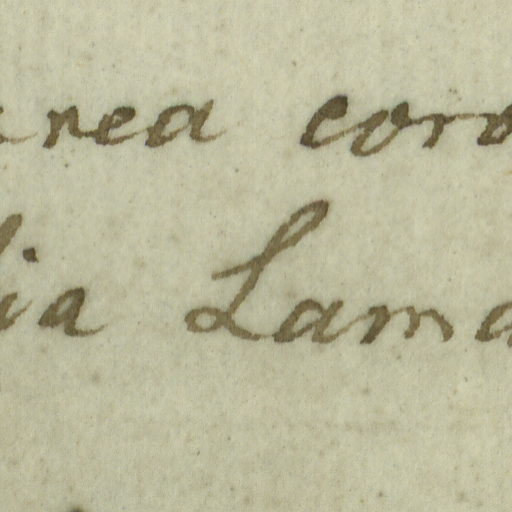 area coro
lia Lama